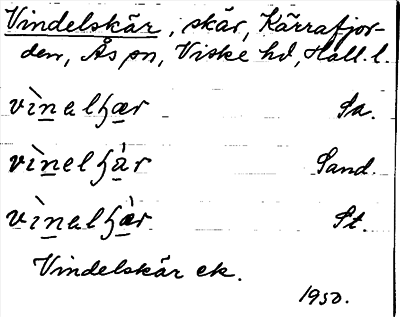 Vindelskär, skär, Kärrafjor-
den, Ås sn, Viske hd, Hall. l.
vìnalʜær Sa.
vìnelʜàr Sand.
vìnalʜàr St.
Vindelskär ek.
1950.